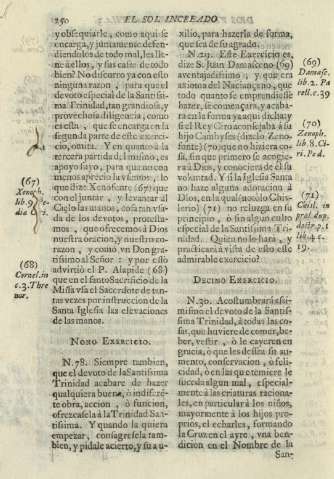 250 EL SOL INCREADO
y obsequiarle, como aqui se
encarga, y juntamente defen-
diendolos de todo mal, les lle-
né à ellos, y sus casas de todo
bien? No discurro ya con esto
ninguna razon, para que el
devoto especial de la Santissi-
ma Trinidad, tan grandiosa, y
provechosa diligencia, como
es esta, que se encarga en la
segunda parte de este exerci-
cio, omita. Y en quanto à la
tercera partida del mismo, es
apoyo suyo, para que no con
menos aprecio la zelen, lo
que dize Xenofante (67) que
con el juntar, y levantar al
Cielo las manos, ossa tan vsa-
da de los devotos, proclama-
mos, que ofrecemos à Dios
nuestra oracion, y nuestro co-
razon, y como vn Don gra-
tissimo al Señor: y por esso
advirtiò el P. Alapide (68)
que en el santo Sacrificio de la
Missa vsa el Sacerdote de tan-
tas vezes por instruccion de la
Santa Iglesia las elevaciones
de las manos.
NONO EXERCICIO.
N.78. Siempre tambien,
que el devoto de la Santissima
Trinidad acabare de hazer
qualquiera buena, ò indifere-
te obra, accion, ò funcion,
ofrezcasela à la Trinidad San-
tissima. Y quando la quiera
empezar, consagresela tam-
bien, y pidale acierto, y su au-
xilio, para hazerla de forma,
que sea de su agrado.
N.29. Este Exercicio es,
dize S. Juan Damasceno (69)
aventajadissimo; y que era
axioma del Nacianceno, que
todo quanto se emprendiesse
hazer, se començara, y acaba-
ra en la forma ya aqui dicha: y
si el Rey Ciro aconsejaba à su
hijo Cambyses (dizelo Zeno-
fante) (70) que no hiziera co-
sa, sin que primero se acogie-
ra à Dios, y conociera de el su
voluntad. Y si la Iglesia Santa
no haze alguna adoracion à
Dios, en la qual (succedo Chis-
lerio) (71) no reluzga en su
principio, ò fin algun culto
especial de la Santissima Tri-
nidad. Quien no le hara, y
practicarà à vista de esto este
admirable exercicio?
DECIMO EXERCICIO.
N.30. Acostumbrarà assi-
mismo el devoto de la Santis-
sima Trinidad, à todas las co-
sas, que huviere de comer, be-
ber, vestir, ò le cayeren en
gracia, ò que les dessea su au-
mento, conservacion, ò feli-
cidad, ò en las que temiere le
suceda algun mal, especial-
mente à las criaturas raciona-
les, en particular à los niños,
mayormente à los hijos pro-
prios, el echarles, formando
la Cruz en el ayre, vna ben-
dicion en el Nombre de la
San-
(67)
Xenoph.
lib. 9.
(68)
Cornel. in
c. 3. Thre
nor.
(69)
Damasc.
lib. 2. Pa
rell. c. 39
(70)
Zenoph.
lib. 8. Ci-
ri. Ped.
(71)
Chisl. in
19.